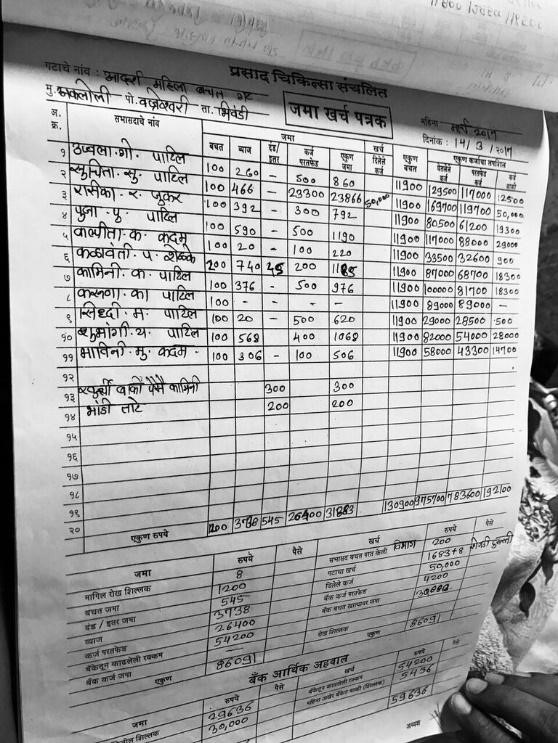 प्रसाद चिकित्सा संचलित
गटाचे नांव : आदर्श महिला बचत गट
मु. अकलोली पो. वज्रेश्वरी ता. भिवंडी
जमा खर्च पत्रक
महिना मार्च 2017
दिनांक : 14/3/2017
अ. क्र. सभासदाचे नांव जमा खर्च एकुण बचत एकुण कर्जाचा तपशिल
बचत व्याज दंड/इतर कर्ज परतफेड एकुण जमा दिलेले कर्ज घेतलेले कर्ज परतफेड कर्ज बाकी
१ उज्वला. गो. पाटिल 100 260 - 500 860 11900 129500 117000 12500
२ सुचिता. सु. पाटिल 100 466 - 23300 23866 50,000 11900 169700 119700 50,000
३ सारीका. र. जुकर 100 392 - 300 792 11900 80500 61200 19300
४ पुजा. पु. पाटिल 100 590 - 500 1190 11900 117000 88000 29000
५ क. कदम 100 20 - 100 220 11900 33500 32600 900
६ कळावंती. प. शेळके 200 740 45 200 1185 11900 87000 68700 18300
७ कामिनी. क. पाटिल 100 376 - 500 976 11900 100000 81700 18300
८ करुणा. का पाटिल 100 - - - - 11900 89000 89000 -
९ सिध्दी. म. पाटिल 100 20 - 500 620 11900 29000 28500 500
१० शुभांगी. य. पाटिल 100 568 - 400 1068 11900 82000 54000 28000
११ भाविनी. मु. कदम. 100 306 - 100 506 11900 58000 43300 14700
१२
१३ बाकी पैसे कामिनी 300 300
१४ भांडी 200 200
१५
१६
१७
१८
१९
२० एकुण रुपये 1200 3738 545 26400 31883 130900 975700 783600 192100
जमा रुपये पैसे खर्च रुपये पैसे
मागिल रोख शिल्लक 8 सभासद बचत परत केली 200
बचत जमा 1200 गटाचा खर्च 1683+8
दंड / इतर जमा 545 दिलेले कर्ज 50,000
व्याज 3738 बँक कर्ज परतफेड 4200
कर्ज परतफेड 26400 बँक बचत खात्यावर जमा 30,000
बँकेतून काढलेली रक्कम 54200
बँक कर्ज जमा — रोख शिल्लक
एकुण 86091 एकुण 86091
बँक आर्थिक अहवाल
जमा रुपये पैसे खर्च रुपये पैसे
शिल्लक 29636 बँकेतून काढलेली रक्कम 54200
30,000 5436
59636
अध्यक्ष